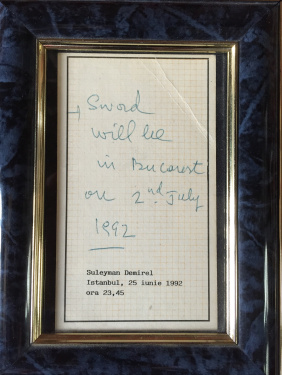 → Sword
will be
in Bucarest
on 2nd. July
1992
Suleyman Demirel
Istanbul, 25 iunie 1992
ora 23,45